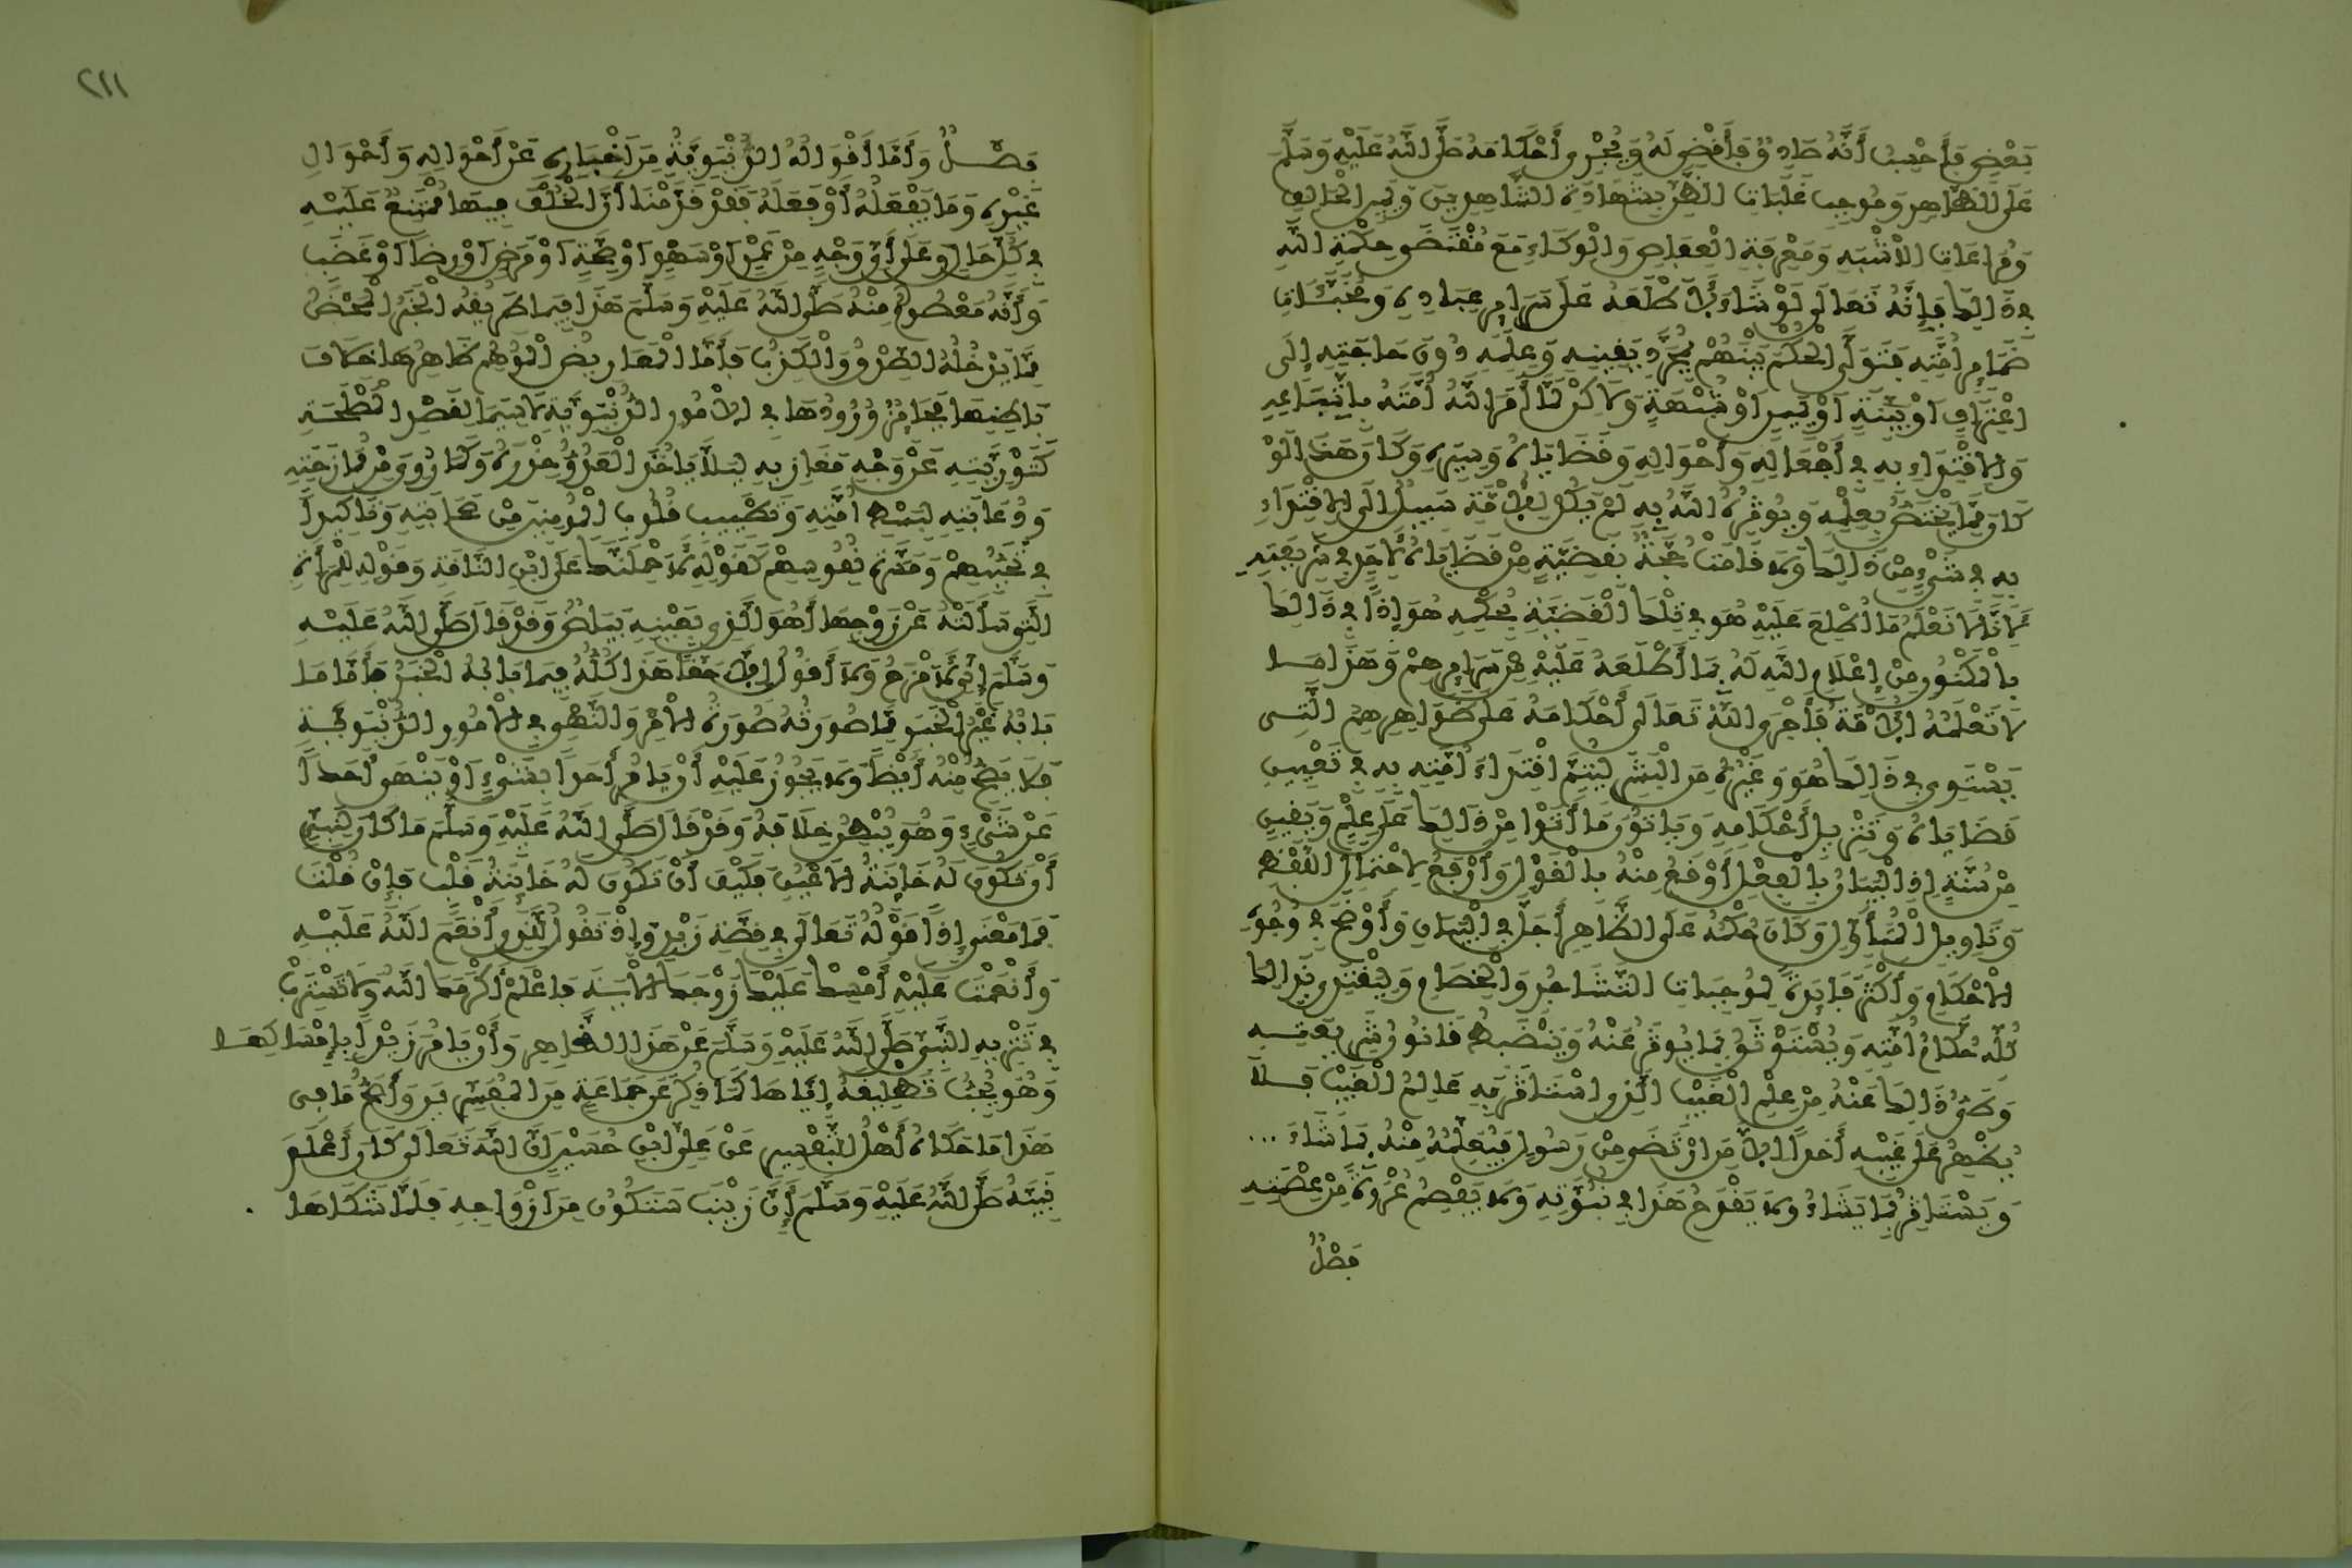 بَعْضٍ فَأَحْسِبُ أَنَّهُ صَادِقٌ فَأَقْضِي لَهُ وَيُجْرِي أَحْكَامَهُ صَلَّى اللَّهُ عَلَيْهِ وَسَلَّمَ
عَلَى الظَّاهِرِ وَمُوجِبِ غَلَبَاتِ الظَّنِّ بِشَهَادَةِ الشَّاهِدِ وَيَمِينِ الْحَالِفِ
وَمُرَاعَاتِ الْأَشْبَهِ وَمَعْرِفَةِ الْعِفَاصِ وَالْوِكَاءِ مَعَ مُقْتَضَى حِكْمَةِ اللَّهِ
فِي ذَالِكَ فَإِنَّهُ تَعَالَى لَوْ شَاءَ لَأَطْلَعَهُ عَلَى سَرَائِرِ عِبَادِهِ وَمُخَبَّآتِ
ضَمَائِرِ أُمَّتِهِ فَتَوَلَّى الْحُكْمَ بَيْنَهُمْ بِمُجَرَّدِ يَقِينِهِ وَعِلْمِهِ دُونَ حَاجَتِهِ إِلَى
اعْتِرَافٍ أَوْ بَيِّنَةٍ أَوْ يَمِينٍ أَوْ شُبْهَةٍ وَلَاكِنْ لَمَّا أَمَرَ اللَّهُ أُمَّتَهُ بِاتِّبَاعِهِ
وَالِاقْتِدَاءِ بِهِ فِي أَفْعَالِهِ وَأَحْوَالِهِ وَقَضَايَاهُ وَسِيَرِهِ وَكَانَ هَذَا لَوْ
كَانَ مِمَّا يَخْتَصُّ بِعِلْمِهِ وَيُوثِرُهُ اللَّهُ بِهِ لَمْ يَكُنْ لِلْأُمَّةِ سَبِيلٌ إِلَى الِاقْتِدَاءِ
بِهِ فِي شَيْءٍ مِنْ ذَالِكَ وَلَا قَامَتْ حُجَّةٌ بِقَضِيَّةٍ مِنْ قَضَايَاهُ لِأَحَدٍ فِي شَرِيعَتِهِ
لِأَنَّا لَا نَعْلَمُ مَا أُطْلِعَ عَلَيْهِ هُوَ فِي تِلْكَ الْقَضِيَّةِ بِحُكْمِهِ هُوَ إِذًا فِي ذَالِكَ
بِالْمَكْنُونِ مِنْ إِعْلَامِ اللَّهِ لَهُ بِمَا أَطْلَعَهُ عَلَيْهِ مِنْ سَرَائِرِهِمْ وَهَذَا مَا
لَا تَعْلَمُهُ الْأُمَّةُ فَأَجْرَى اللَّهُ تَعَالَى أَحْكَامَهُ عَلَى ظَوَاهِرِهِمْ الَّتِي
يَسْتَوِي فِي ذَالِكَ هُوَ وَغَيْرُهُ مِنَ الْبَشَرِ لِيَتِمَّ اقْتِدَاءُ أُمَّتِهِ بِهِ فِي تَعْيِينِ
قَضَايَاهُ وَتَنْزِيلِ أَحْكَامِهِ وَيَاتُونَ مَا أَتَوْا مِنْ ذَالِكَ عَلَى عِلْمٍ وَيَقِينٍ
مِنْ سُنَّتِهِ إِذِ الْبَيَانُ بِالْفِعْلِ أَوْقَعُ مِنْهُ بِالْقَوْلِ وَأَرْفَعُ لِاحْتِمَالِ اللَّفْظِ
وَتَاوِيلِ الْمُتَأَوِّلِ وَكَانَ حُكْمُهُ عَلَى الظَّاهِرِ أَجْلَى فِي الْبَيَانِ وَأَوْضَحَ فِي وُجُوهِ
الْأَحْكَامِ وَأَكْثَرَ فَايِدَةً لِمُوجِبَاتِ التَّشَاجُرِ وَالْخِصَامِ وَلِيَقْتَدِيَ بِذَالِكَ
كُلِّهِ حُكَّامُ أُمَّتِهِ وَيُسْتَوْثَقُ بِمَا يُوثَرُ عَنْهُ وَيَنْضَبِطُ قَانُونُ شَرِيعَتِهِ
وَطَيُّ ذَالِكَ عَنْهُ مِنْ عِلْمِ الْغَيْبِ الَّذِي اسْتَأْثَرَ بِهِ عَالِمُ الْغَيْبِ فَلَا
يُظْهِرُ عَلَى غَيْبِهِ أَحَدًا إِلَّا مَنِ ارْتَضَى مِنْ رَسُولٍ فَيُعَلِّمُهُ مِنْهُ بِمَا شَاءَ ...
وَيَسْتَاثِرُ بِمَا يَشَاءُ وَلَا يَقْدَحُ هَذَا فِي نُبُوَّتِهِ وَلَا يَفْصِمُ عُرْوَةً مِنْ عِصْمَتِهِ
فَصْلٌ
٢١١
فَصْلٌ وَأَمَّا أَقْوَالُهُ الدُّنْيَوِيَّةُ مِنْ إِخْبَارِهِ عَنْ أَحْوَالِهِ وَأَحْوَالِ
غَيْرِهِ وَمَا يَفْعَلُهُ أَوْ فَعَلَهُ فَقَدْ قَدَّمْنَا أَنَّ الْخُلْفَ فِيهَا مُمْتَنِعٌ عَلَيْهِ
فِي كُلِّ حَالٍ وَعَلَى أَيِّ وَجْهٍ مِنْ عَمْدٍ أَوْ سَهْوٍ أَوْ صِحَّةٍ أَوْ مَرَضٍ أَوْ رِضًا أَوْ غَضَبٍ
وَأَنَّهُ مَعْصُومٌ مِنْهُ صَلَّى اللَّهُ عَلَيْهِ وَسَلَّمَ هَذَا فِيمَا طَرِيقُهُ الْخَبَرُ الْمَحْضُ
مِمَّا يَدْخُلُهُ الصِّدْقُ وَالْكَذِبُ فَأَمَّا الْمَعَارِيضُ الْمُوهِمُ ظَاهِرُهَا خِلَافَ
بَاطِنِهَا فَجَائِزٌ وُرُودُهَا فِي الْأُمُورِ الدُّنْيَوِيَّةِ لَا سِيَّمَا لِقَصْدِ الْمَصْلَحَةِ
كَتَوْرِيَتِهِ عَنْ وَجْهِ مَغَازِيهِ لِيَلَّا يَاخُذَ الْعَدُوُّ حِذْرَهُ وَكَمَا رُوِيَ مِنْ مُمَازَحَتِهِ
وَدُعَابَتِهِ لِبَسْطِ أُمَّتِهِ وَتَطْيِيبِ قُلُوبِ الْمُومِنِينَ مِنْ صَحَابَتِهِ وَتَاكِيدًا
فِي تَحَبُّبِهِمْ وَمَسَرَّةِ نُفُوسِهِمْ كَقَوْلِهِ لَأَحْمِلَنَّكَ عَلَى ابْنِ النَّاقَةِ وَقَوْلِهِ لِلْمَرْأَةِ
الَّتِي سَأَلَتْهُ عَنْ زَوْجِهَا أَهُوَ الَّذِي بِعَيْنِهِ بَيَاضٌ وَقَدْ قَالَ صَلَّى اللَّهُ عَلَيْهِ
وَسَلَّمَ إِنِّي لَأَمْزَحُ وَلَا أَقُولُ إِلَّا حَقًّا هَذَا كُلُّهُ فِيمَا بَابُهُ الْخَبَرُ فَأَمَّا مَا
بَابُهُ غَيْرُ الْخَبَرِ مِمَّا صُورَتُهُ صُورَةُ الْأَمْرِ وَالنَّهْيِ فِي الْأُمُورِ الدُّنْيَوِيَّةِ
فَلَا يَصِحُّ مِنْهُ أَيْضًا وَلَا يَجُوزُ عَلَيْهِ أَنْ يَامُرَ أَحَدًا بِشَيْءٍ أَوْ يَنْهَى أَحَدًا
عَنْ شَيْءٍ وَهُوَ يُبْطِنُ خِلَافَهُ وَقَدْ قَالَ صَلَّى اللَّهُ عَلَيْهِ وَسَلَّمَ مَا كَانَ لِنَبِيٍّ
أَنْ تَكُونَ لَهُ خَائِنَةُ الْأَعْيُنِ فَكَيْفَ أَنْ تَكُونَ لَهُ خَائِنَةُ قَلْبٍ فَإِنْ قُلْتَ
فَمَا مَعْنَى إِذًا قَوْلُهُ تَعَالَى فِي قِصَّةِ زَيْدٍ وَإِذْ تَقُولُ لِلَّذِي أَنْعَمَ اللَّهُ عَلَيْهِ
وَأَنْعَمْتَ عَلَيْهِ أَمْسِكْ عَلَيْكَ زَوْجَكَ الْأَيَةَ فَاعْلَمْ أَكْرَمَكَ اللَّهُ وَلَا تَسْتَرِبْ
فِي تَنْزِيهِ النَّبِيِّ صَلَّى اللَّهُ عَلَيْهِ وَسَلَّمَ عَنْ هَذَا الظَّاهِرِ وَأَنْ يَامُرَ زَيْدًا بِإِمْسَاكِهَا
وَهُوَ يُحِبُّ تَطْلِيقَهُ إِيَّاهَا كَمَا ذُكِرَ عَنْ جَمَاعَةٍ مِنَ الْمُفَسِّرِينَ وَأَصَحُّ مَا فِي
هَذَا مَا حَكَاهُ أَهْلُ التَّفْسِيرِ عَنْ عَلِيِّ ابْنِ حُسَيْنٍ أَنَّ اللَّهَ تَعَالَى كَانَ أَعْلَمَ
نَبِيَّهُ صَلَّى اللَّهُ عَلَيْهِ وَسَلَّمَ إِنَّ زَيْنَبَ سَتَكُونُ مِنْ أَزْوَاجِهِ فَلَمَّا شَكَاهَا